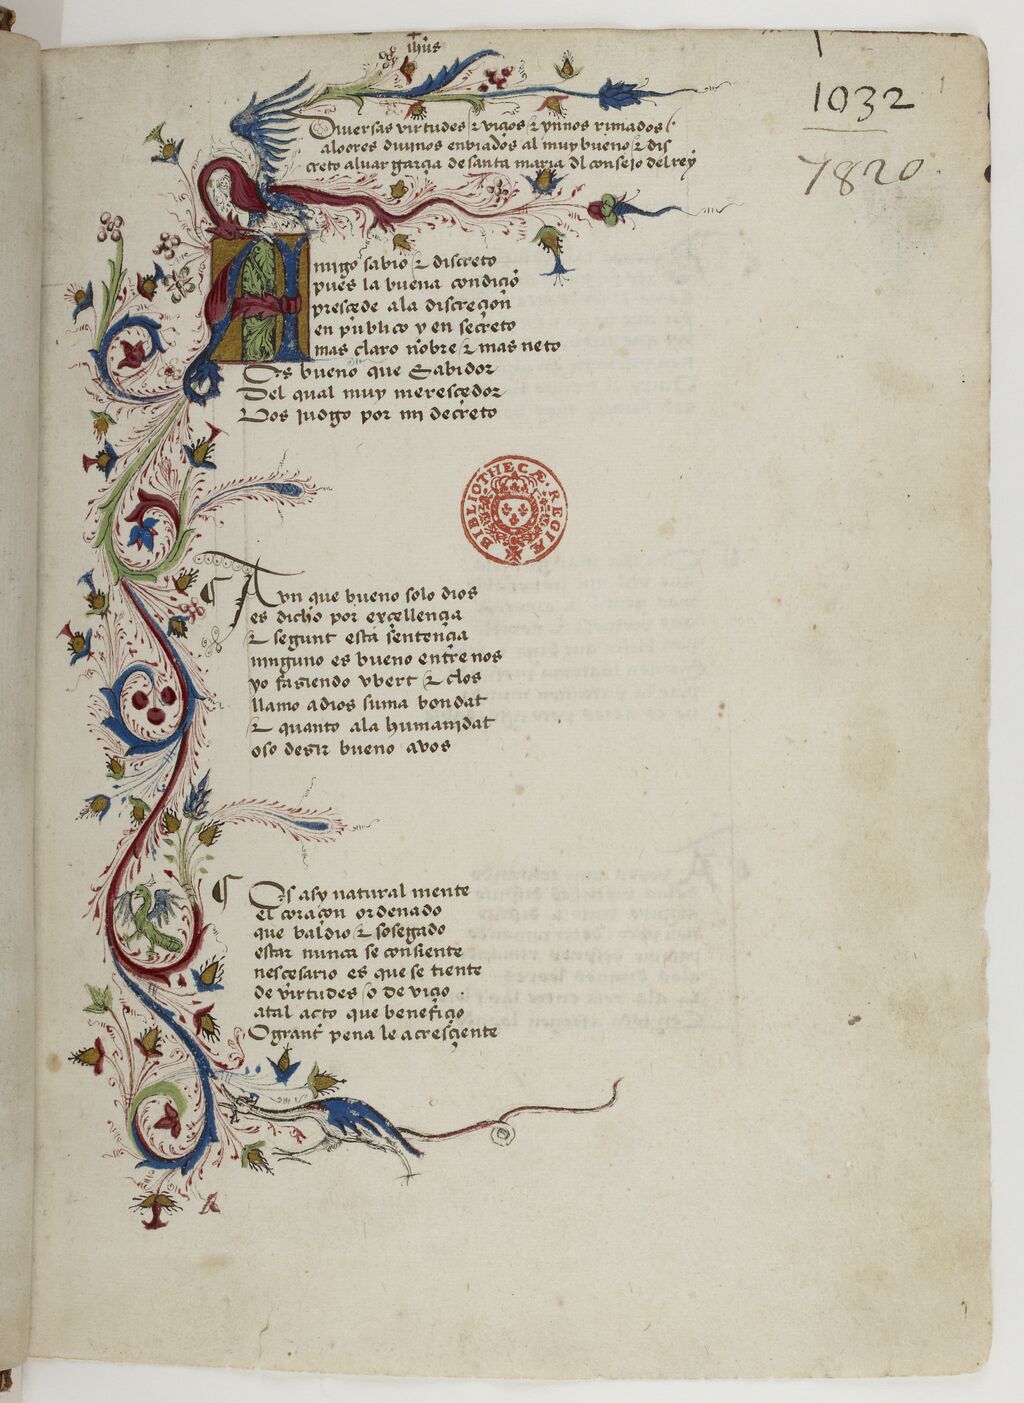 ihus
1032
7820
Diuersas virtudes & viçios & ynnos rimados
aloores diuinos enbiados al muy bueno & dis
creto aluar garçia de santa maria dl consejo del rey
Amigo sabio & discreto
pues la buena condiçiō
presçede ala discreçion
en publico y en secreto
mas claro nōbre & mas neto
Es bueno que sabidor
Del qual muy meresçedor
Vos judgo por mi decreto
BIBLIOTHECÆ REGIÆ
¶ Avn que bueno solo dios
es dicho por exçellençia
& segunt esta sentençia
ninguno es bueno entre nos
yo fasiendo vbert & clos
llamo adios suma bondat
& quanto ala humanidat
oso desir bueno avos
¶ Es asy natural mente
el coraçon ordenado
que baldio & sosegado
estar nunca se consiente
nesçesario es que se tiente
de virtudes o de viçio
atal acto que benefiçio
O grant pena le acresçiente